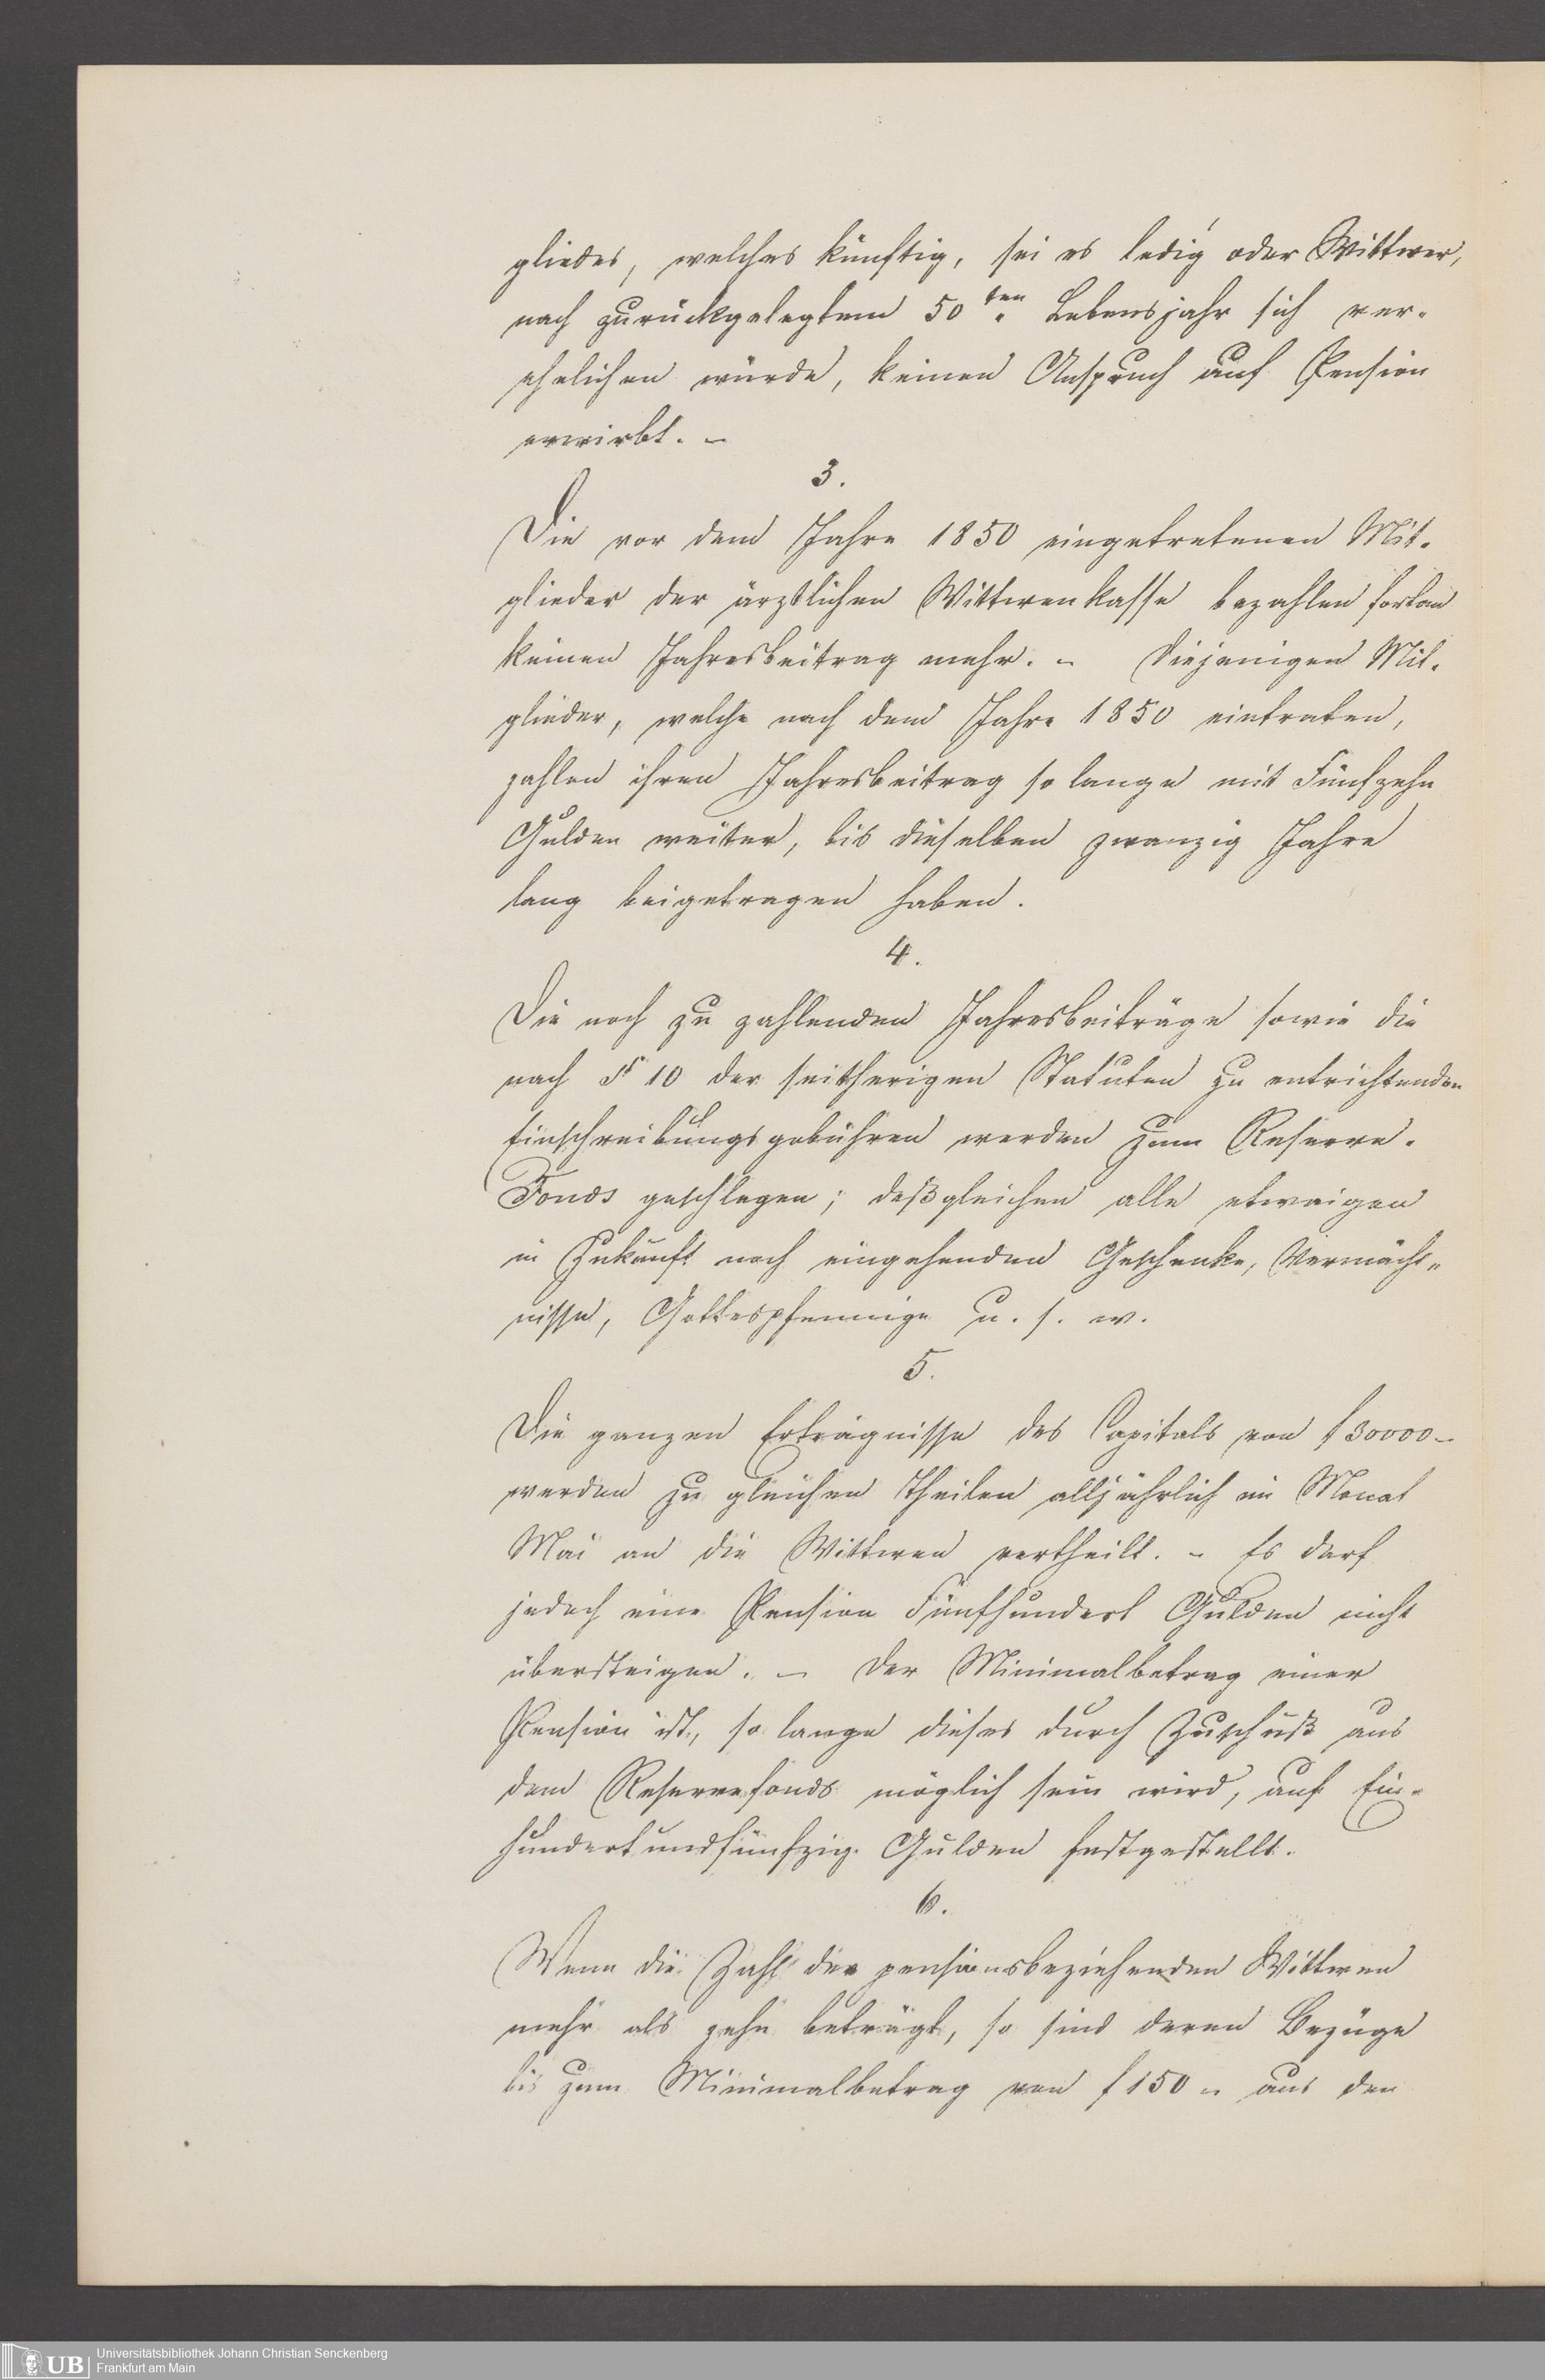 gliedes, welches künftig, sei es ledig oder Wittwer,
nach zurückgelegtem 50ten Lebensjahr sich ver-
ehelichen würde, keinen Anspruch auf Pension
erwirbt. –
3.
Die vor dem Jahre 1850 eingetretenen Mit-
glieder der ärztlichen Wittwenkasse bezahlen fortan
keinen Jahresbeitrag mehr. – Diejenigen Mit-
glieder, welche nach dem Jahre 1850 eintraten,
zahlen ihren Jahresbeitrag so lange mit Fünfzehn
Gulden weiter, bis dieselben zwanzig Jahre
lang beigetragen haben.
4.
Die noch zu zahlenden Jahresbeiträge sowie die
nach § 10 der seitherigen Statuten zu entrichtenden
Einschreibungsgebühren werden zum Reserve-
Fonds geschlagen; deßgleichen alle etwaigen
in Zukunft noch eingehenden Geschenke, Vermächt-
nisse, Gottespfennige u. s. w.
5.
Die ganzen Erträgnisse des Capitals von f 30000 –
werden zu gleichen Theilen alljährlich im Monat
Mai an die Wittwen vertheilt. – Es darf
jedoch eine Pension Fünfhundert Gulden nicht
übersteigen. – Der Minimalbetrag einer
Pension ist, so lange dieses durch Zuschuß aus
dem Reservefonds möglich sein wird, auf Ein-
hundertundfünfzig Gulden festgestellt.
6.
Wenn die Zahl der pensionsbeziehenden Wittwen
mehr als zehn beträgt, so sind deren Bezüge
bis zum Minimalbetrag von f 150 – aus den
Universitätsbibliothek Johann Christian Senckenberg
Frankfurt am Main
UB